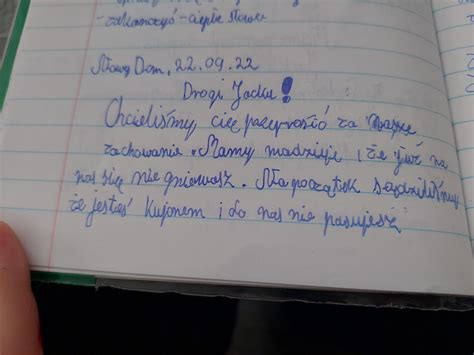 -zakończyć - ciepłe słowa
Nowy Dom, 22.09.22
Drogi Jacku!
Chcieliśmy cię przeprosić za nasze
zachowanie. Mamy nadzieję, że już na
nas się nie gniewasz. Na początek sądziliśmy
że jesteś kujonem i do nas nie pasujesz